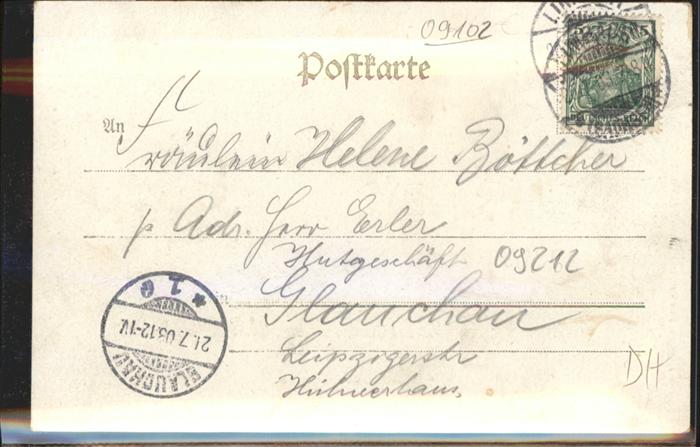 09102
Postkarte
An
Fräulein Helene Böttcher
p Adr. Herr Erler
Hutgeschäft 09212
in Glauchau
Leipzigerstr
Hühnerhaus,
DH
GLAUCHAU
21.7.03.12-1V.
* 1 e